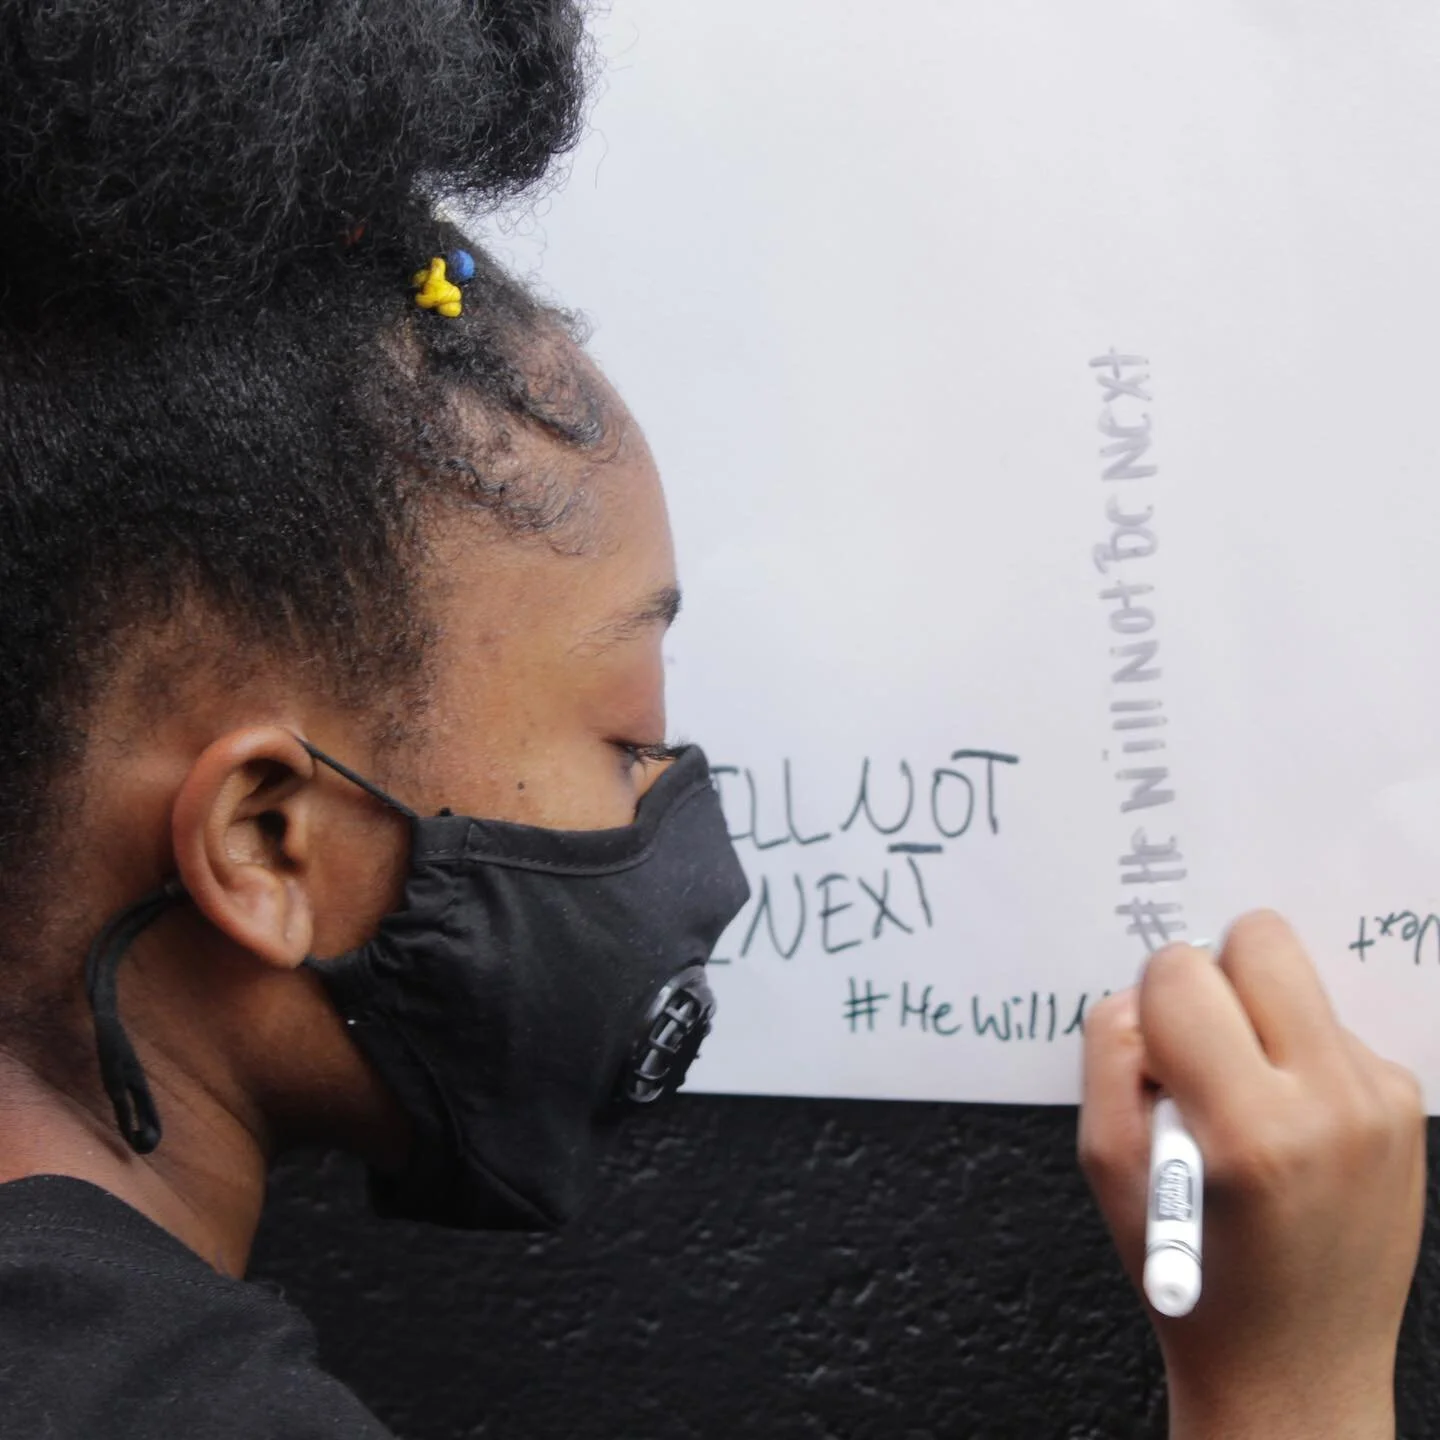 #He Will Not Be Next
ILL NOT
NEXT
#HeWill
Next
Crayola